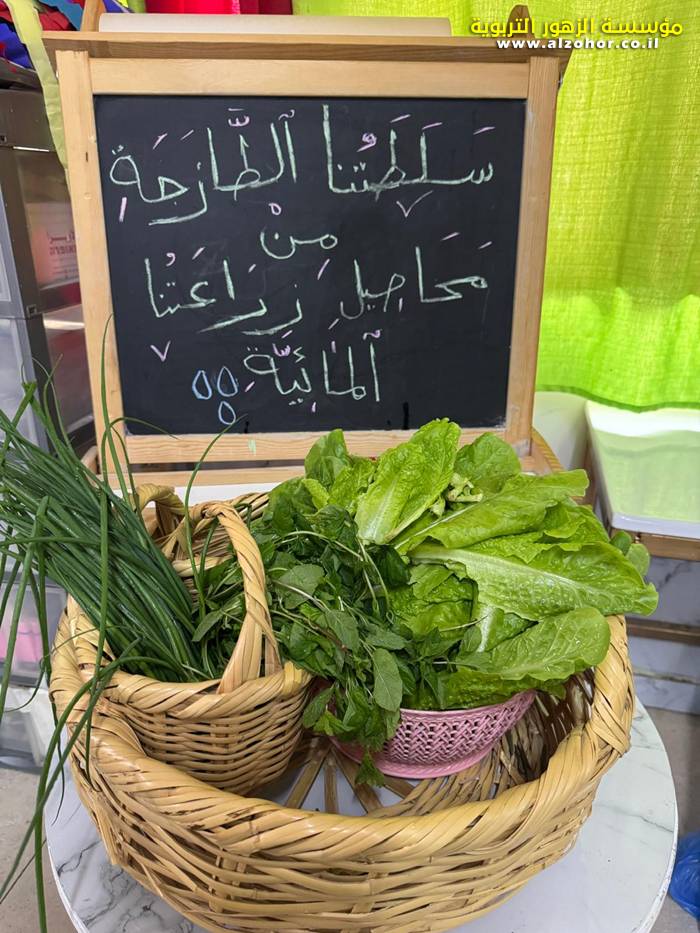 مؤسسة الزهور التربوية
www.alzohor.co.il
سَلَطَتُنا ٱلطّازَجَةُ
مِنْ
مَحاصيلِ زِراعَتِنا
ٱلمائِيَّةِ